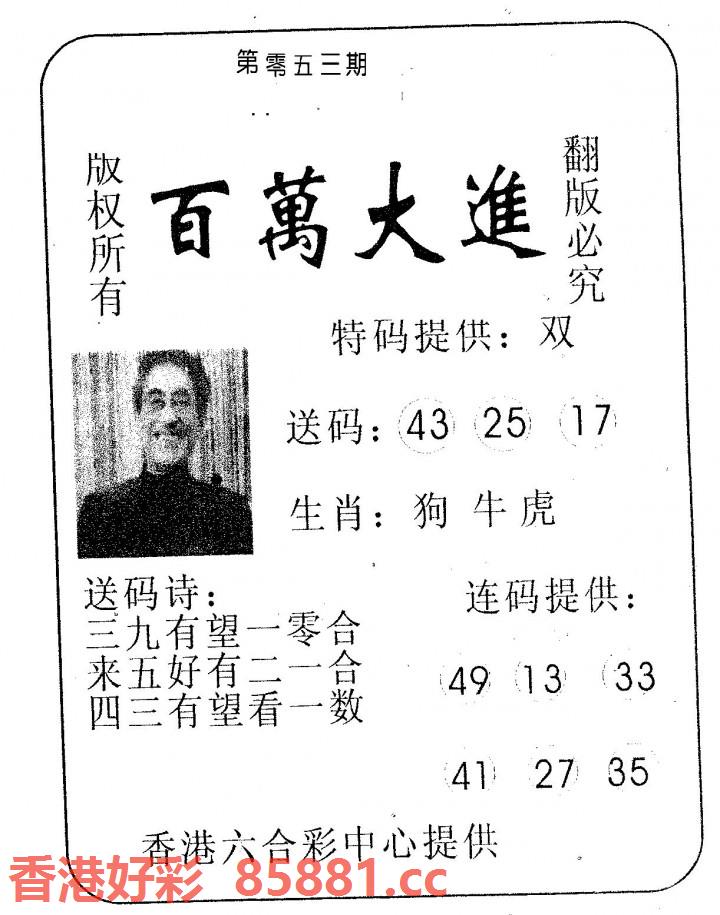 第零五三期
版权所有
百萬大進
翻版必究
特码提供：双
送码：43 25 17
生肖：狗牛虎
送码诗：
三九有望一零合
来五好有二一合
四三有望看一数
连码提供：
49 13 33
41 27 35
香港六合彩中心提供
香港好彩 85881.cc